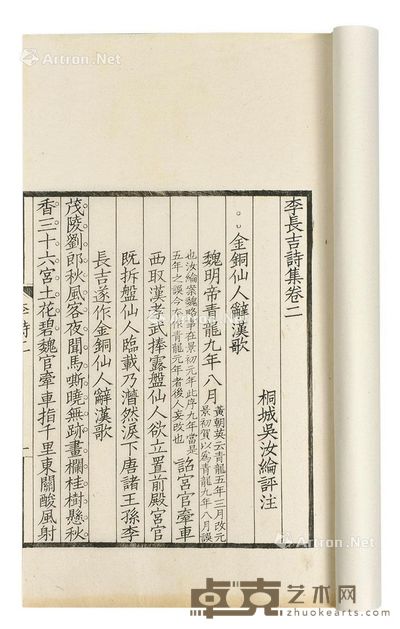 Artron.Net
Artron.Net
李長吉詩集卷二
桐城吳汝綸評注
金銅仙人辭漢歌
魏明帝青龍九年八月黃朝英云青龍五年三月改元景初賀以爲青龍九年八月誤
也汝綸案魏略事在景初元年此序九年當是五年之誤今本作青龍元年者後人妄改也詔宮官牽車
西取漢孝武捧露盤仙人欲立置前殿宮官
既拆盤仙人臨載乃潸然淚下唐諸王孫李
長吉遂作金銅仙人辭漢歌
茂陵劉郎秋風客夜聞馬嘶曉無跡畫欄桂樹懸秋
香三十六宮土花碧魏官牽車指千里東關酸風射
李詩二
一
卓克艺术网
zhuokearts.com